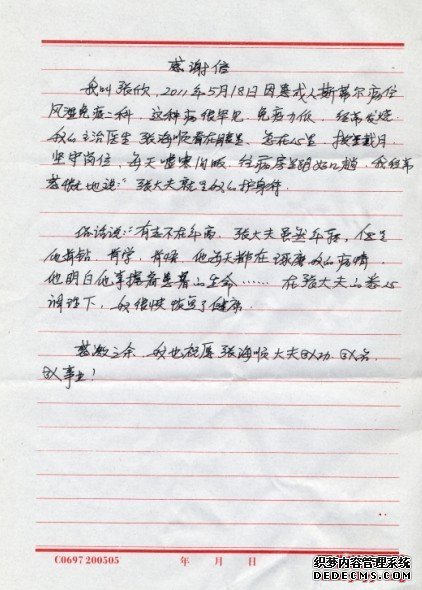 感谢信
我叫张欣，2011年5月18日因患成人斯蒂尔病住
风湿免疫二科，这种病很罕见，免疫力低，经常发烧
我的主治医生张海顺看在眼里、急在心里，披星戴月，
坚守岗位，每天嘘寒问暖，给病房里跑好几趟，我经常
感慨地说：张大夫就是我的护身符。
俗话说：有志不在年高，张大夫虽然年轻，但是
他肯钻、肯学、肯悟，他每天都在琢磨我的病情，
他明白他掌握着患者的生命……在张大夫的悉心
调理下，我很快恢复了健康
感激之余，我也祝愿张海顺大夫
事业！
C0697 200505 年 月 日
织梦内容管理系统
DEDECMS.COM